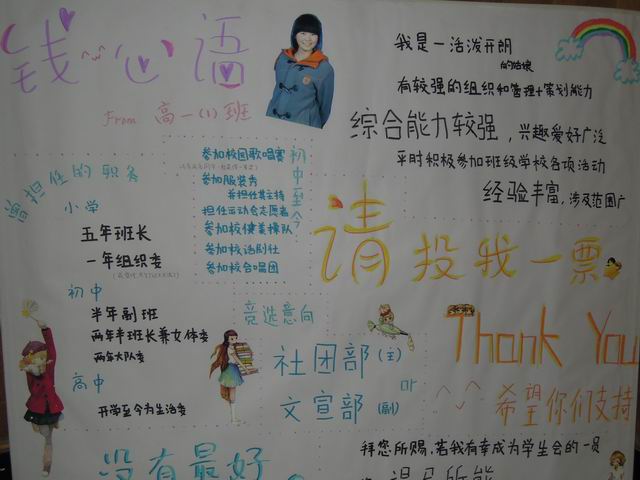 钱心语
From 高一(1)班
我是一活泼开朗
的姑娘
有较强的组织和管理+策划能力
综合能力较强，兴趣爱好广泛
平时积极参加班级学校各项活动
经验丰富,涉及范围广
曾担任的职务
小学
五年班长
一年组织委
初中
半年副班
两年半班长兼女体委
两年大队委
高中
开学至今为生活委
初中至今
参加校园歌唱赛
参加服装秀
并担任其主持
担任运动会志愿者
参加校健美操队
参加校话剧社
参加校合唱团
请投我一票
竞选意向
社团部(主)
or
文宣部(副)
Thank You
^_^ 希望你们支持
拜您所赐,若我有幸成为学生会的一员
没有最好